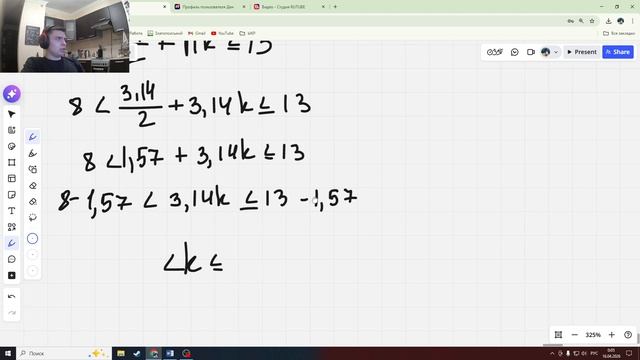 Профиль пользователя Дан
Видео - Студия RUTUBE
Gmail
YouTube
Все закладки
Present
Share
+ πk ≤ 13
8 < 3,14/2 + 3,14k ≤ 13
8 < 1,57 + 3,14k ≤ 13
8 - 1,57 < 3,14k ≤ 13 - 1,57
< k ≤
325%
Поиск
РУС
0:01
16.04.2026